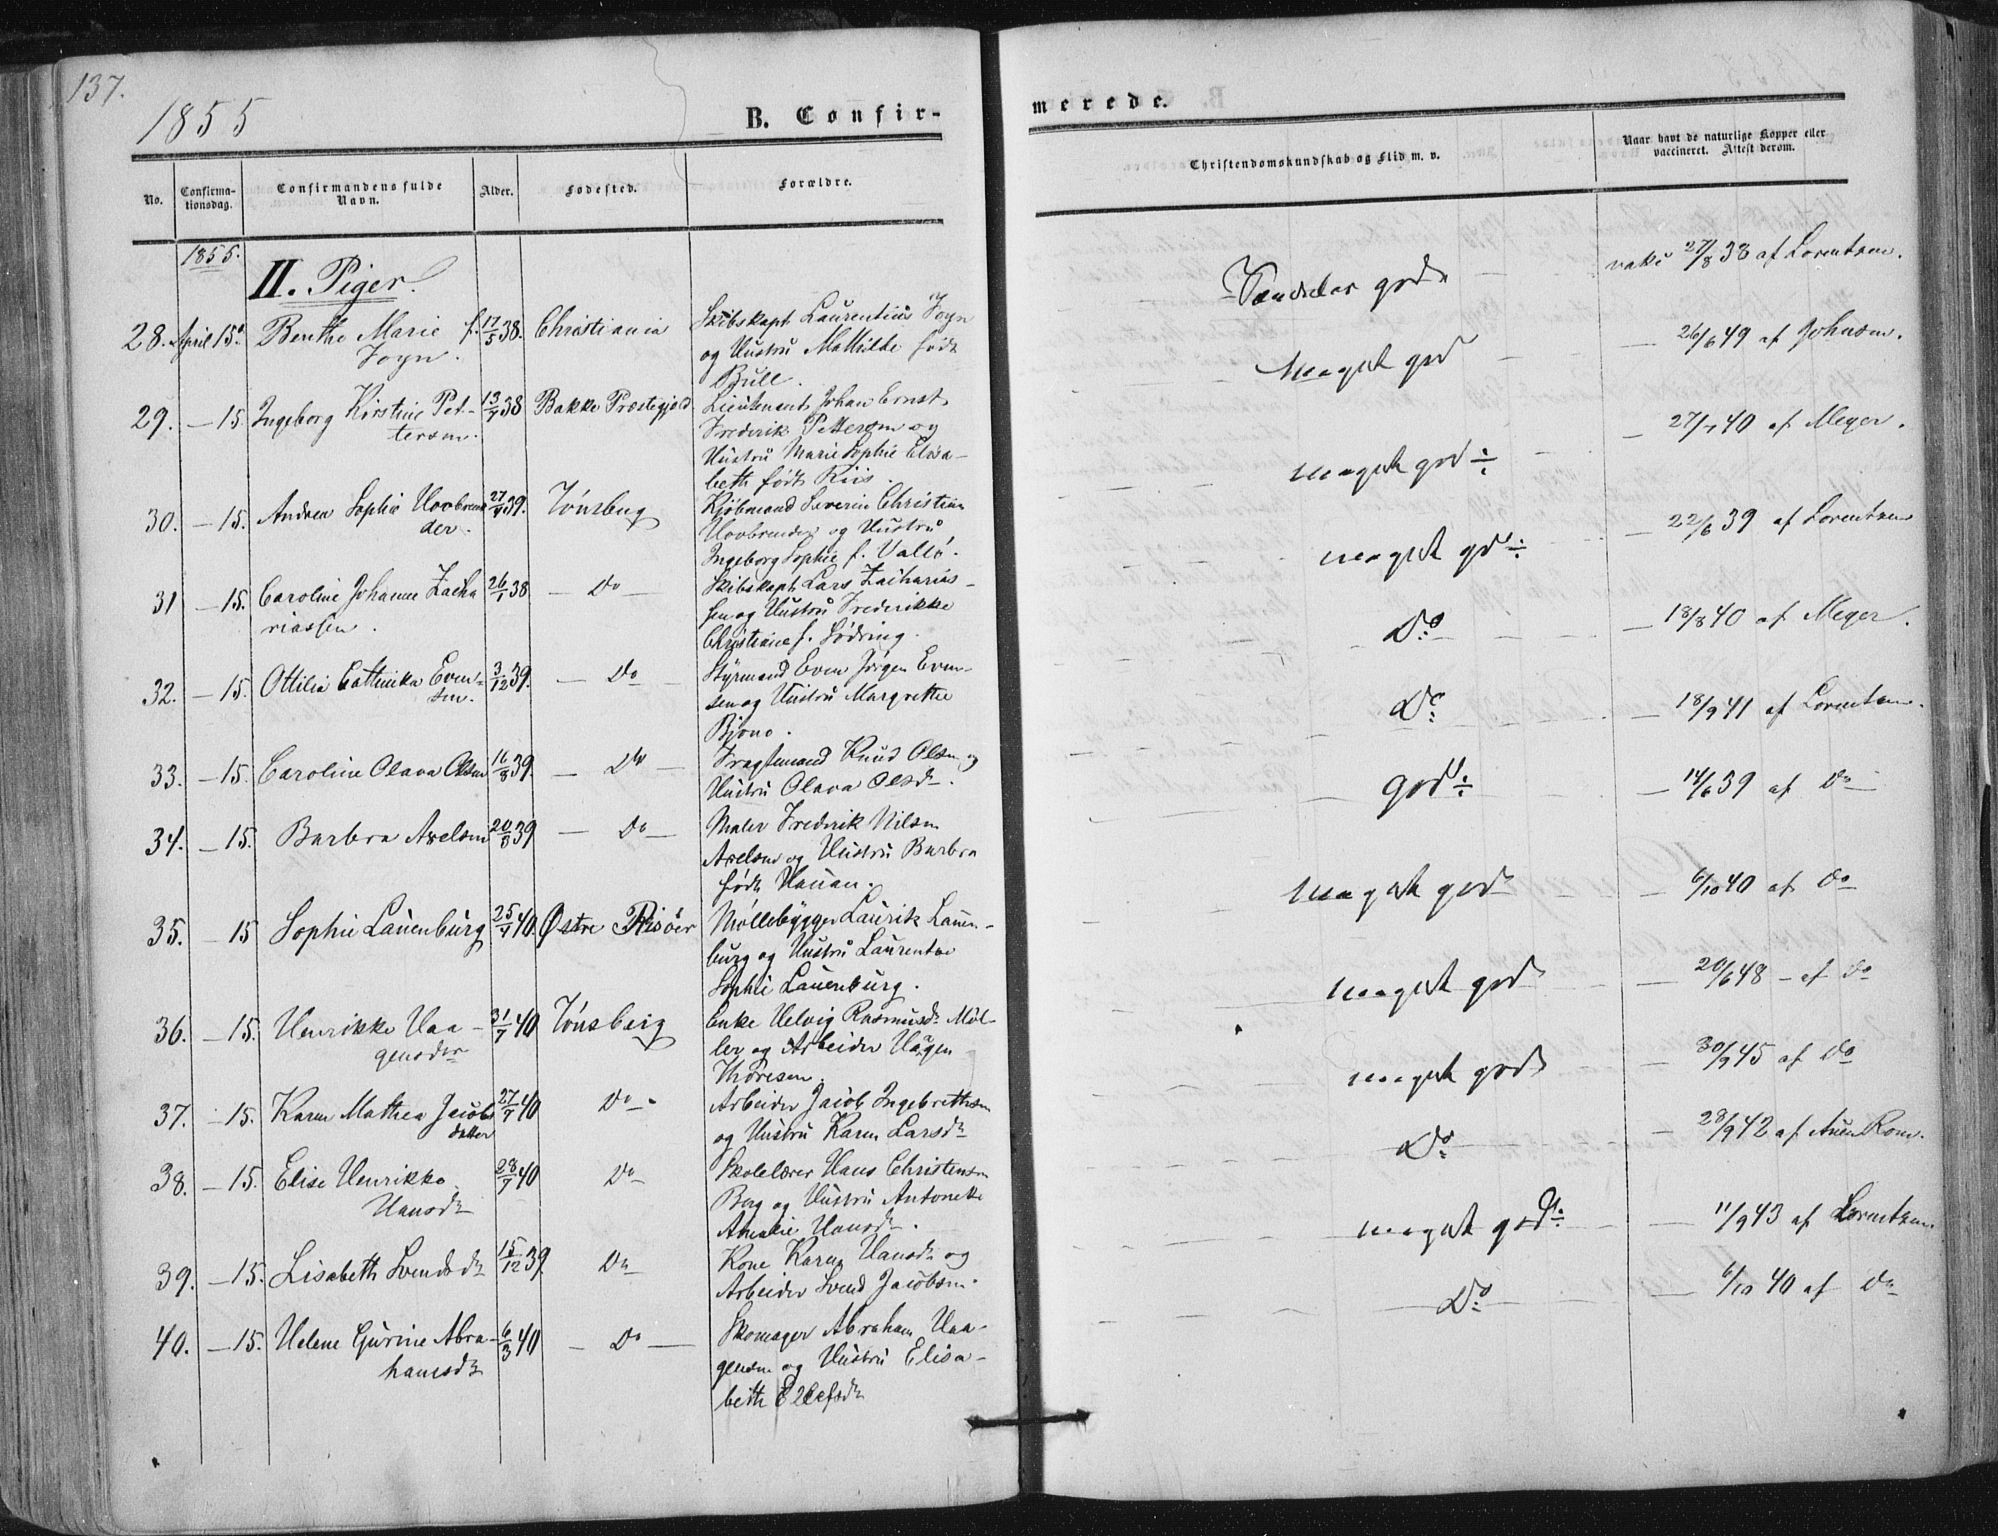 137.
1855
B. Confir-
No.
Confirma-
tionsdag.
Confirmandens fulde
Navn.
Alder.
Fødested.
Forældre.
1855.
II. Piger.
28. April 15d Benthe Marie f. 17/5 38. Christiania Skibskapt Laurentius Foyn
Foyn. og Hustru Mathilde født
Bull.
29. — 15. Ingeborg Kirstine Pet- 13/7 38 Bakke Præstegjæld Lieutenant Johan Ernst
tersen. Frederik Pettersen og
Hustru Marie Sophie Elisa-
beth født Riis.
30. — 15. Andrea Sophie Hovbren 27/4 39. Tönsberg Kjöbmand Severin Christian
der. Hovbrender og Hustru
Ingeborg Sophie f. Vallö.
31 — 15. Caroline Johanne Zacha 26/1 38 — Do — Skibskapt Lars Zacharias-
riassen. sen og Hustru Frederikke
Christiane f. Södring.
32. — 15. Ottilia Cathinka Even- 3/12 39. — Do Styrmand Even Jörgen Even-
sen. sen og Hustru Margrethe
33. — 15. Caroline Olava Olsen 16/8 39. — Do — Fragtemand Knud Olsen og
Hustru Olava Olsdr.
34. — 15. Barbra Axelsen 20/8 39 — Do — Maler Frederik Nilsen
Axelsen og Hustru Barbra
født Hauan.
35. — 15 Sophie Lauenburg 25/4 40. Østre Risöer Möllebygger Laurik Lauen-
burg og Hustru Laurentse
Sophie Lauenburg.
36. — 15. Henrikke Haa- 31/7 40 Tönsberg Enke Helvig Rasmusdr Möl-
gensdr ler og Arbeider Hagen
Thoresen.
37. — 15. Karen Mathea Jacobs 27/7 40 Do - Arbeider Jacob Ingebrethsen
datter og Hustru Karen Larsdr
38. — 15. Elise Henrikke 28/7 40 Do Skolelærer Hans Christensen
Hansdr Borg og Hustru Antonette
Amalie Hansdr.
39. — 15. Lisabeth Svendsdr 15/12 39. Do Kone Karen Hansdr og
Arbeider Svend Jacobsen.
40. — 15. Helene Gurine Abra- 6/3 40 — Do — Skomager Abraham Haa-
hamsdr gensen og Hustru Elisa-
beth Ellefsdr
merede.
Christendomskundskab og Flid m. v.
Naar havt de naturlige Kopper eller
vaccineret. Attest derom.
Særdeles god vakc 27/8 38 af Lorentzen.
Meget god — 26/6 49 af Johnsen.
meget god ÷ — 27/7 40 af Meyer.
meget god ÷ 22/6 39 af Lorentzen
Do — 18/8 40 af Meyer.
Do — 18/9 41 af Lorentzen.
god ÷ — 14/6 39 af Do
meget god — 6/10 40 af Do
meget god — 20/6 48 — af Do
meget god — 30/9 45 af Do
Do — 28/9 42 af
meget god ÷ — 11/9 43 af Lorentzen
Do 6/10 40 af Do